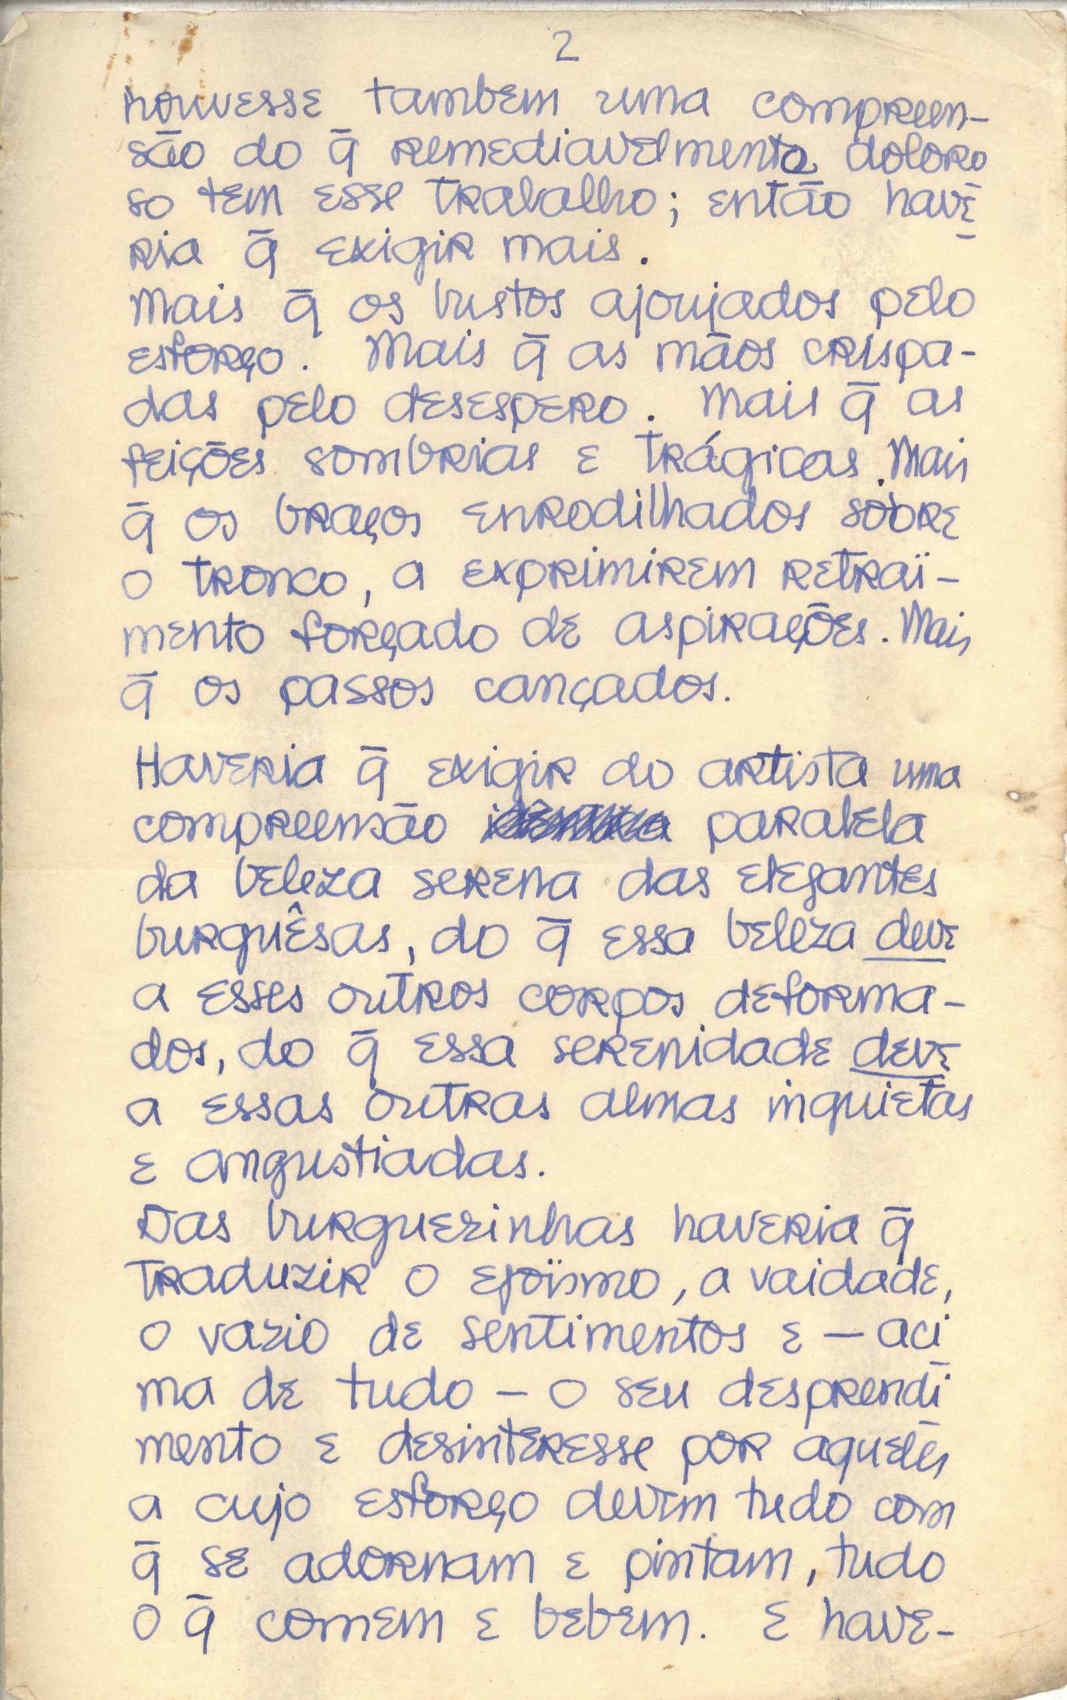 2
houvesse tambem uma compreen-
são do q̄ remediavelmente doloro
so tem esse trabalho; então have
ria q̄ exigir mais.
Mais q̄ os bustos ajoujados pelo
esforço. Mais q̄ as mãos crispa-
das pelo desespero. Mais q̄ as
feições sombrias e trágicas. Mais
q̄ os braços enrodilhados sôbre
o tronco, a exprimirem retraï-
mento forçado de aspirações. Mais
q̄ os passos cançados.
Haveria q̄ exigir do artista uma
compreensão paralela
da beleza serena das elegantes
burguêsas, do q̄ essa beleza deve
a esses outros corpos deforma-
dos, do q̄ essa serenidade deve
a essas outras almas inquietas
e angustiadas.
Das burguezinhas haveria q̄
traduzir o egoïsmo, a vaidade,
o vazio de sentimentos e — aci
ma de tudo — o seu desprendi
mento e desinteresse por aqueles
a cujo esforço devem tudo com
q̄ se adornam e pintam, tudo
o q̄ comem e bebem. E have-